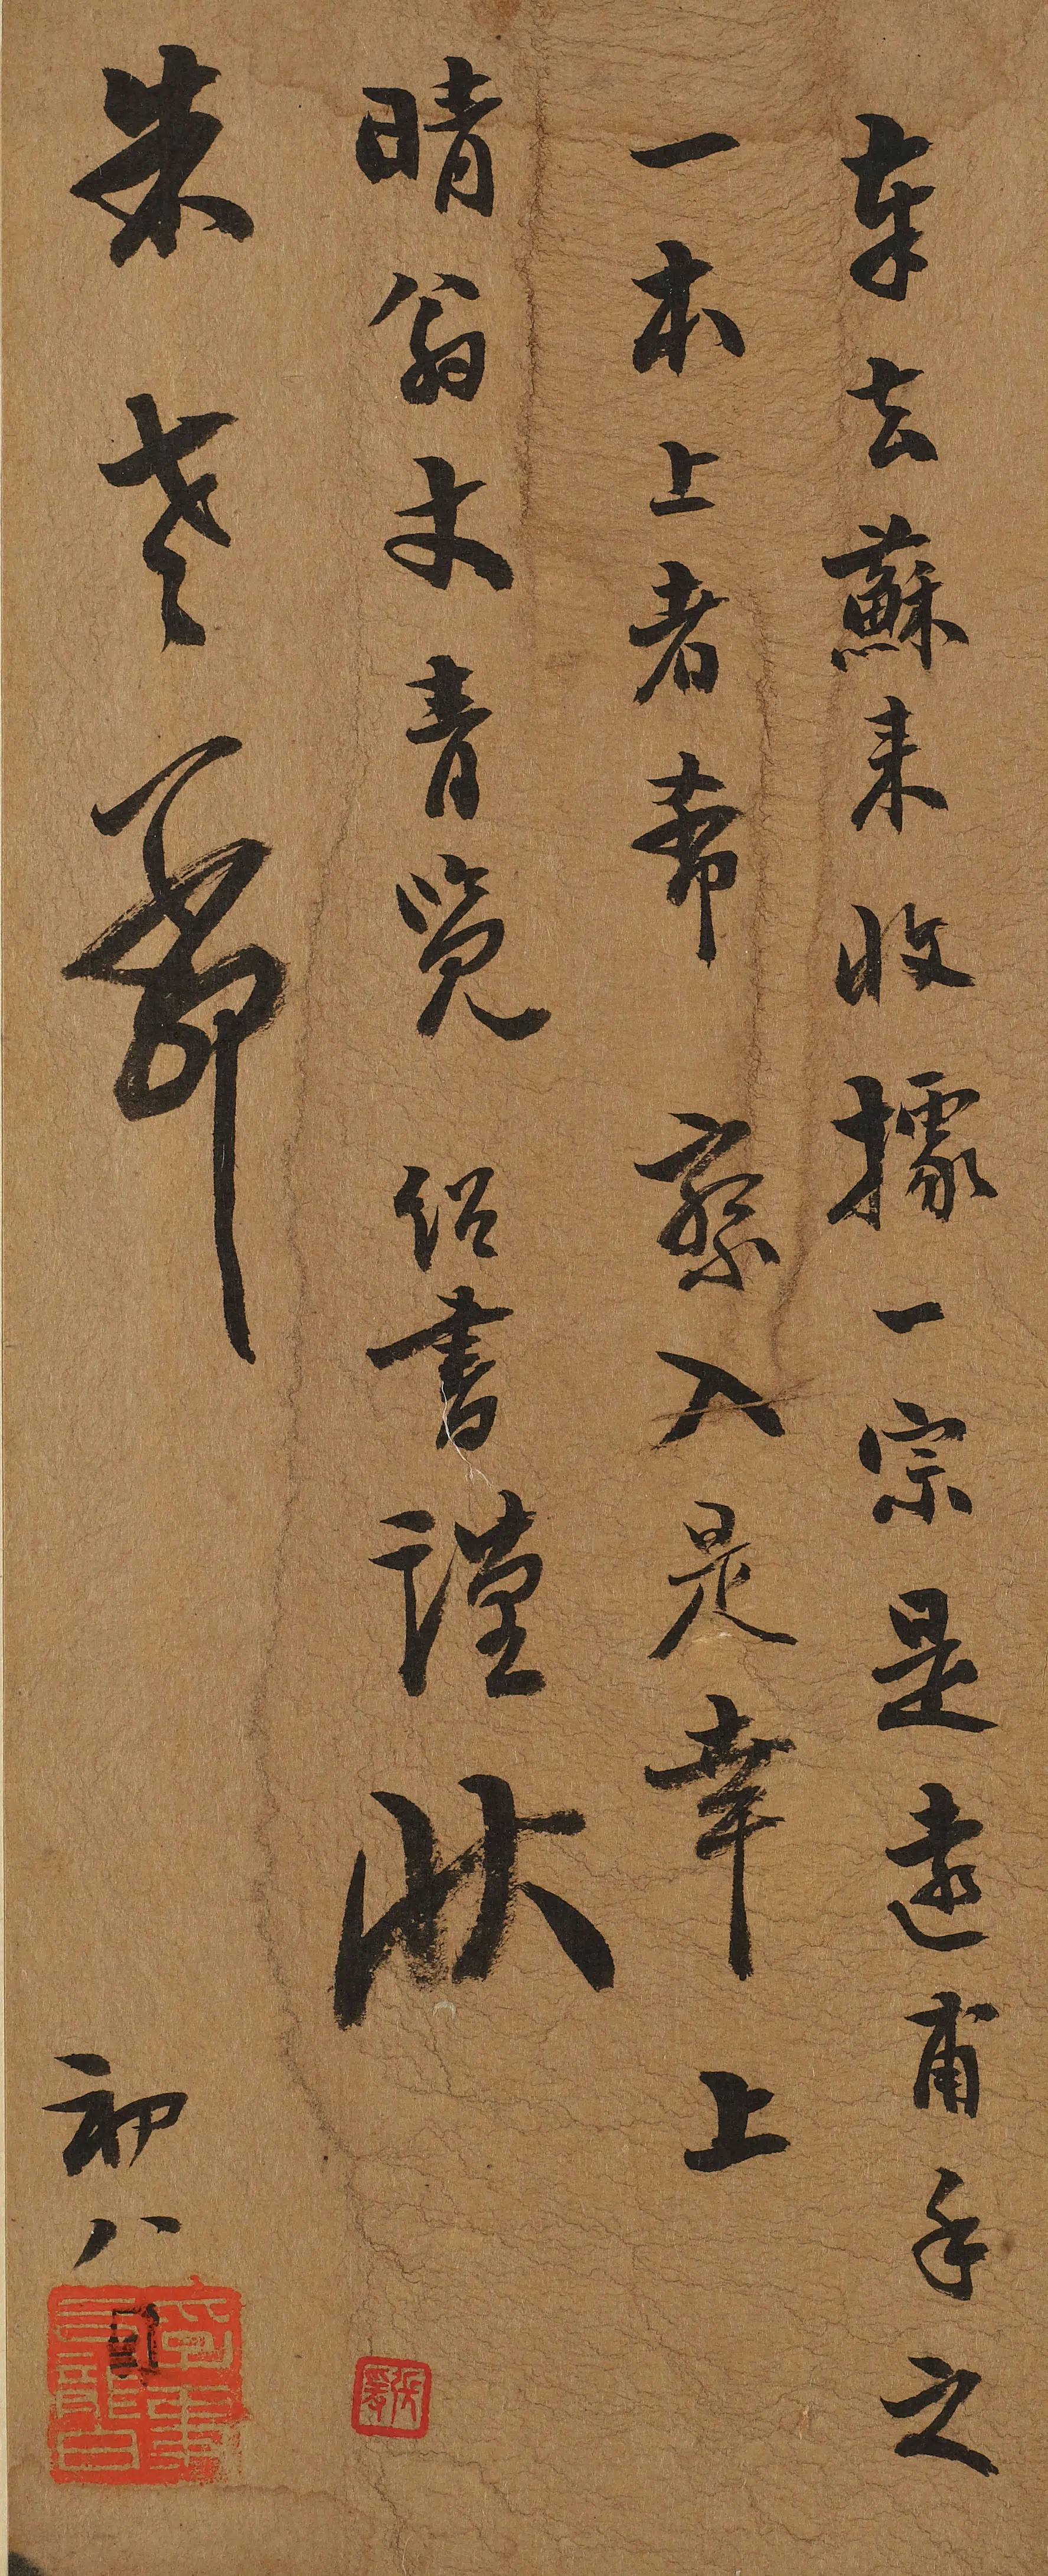 奉去蘇来收據一宗是遠甫手之
一本上者希 察入是幸上
晴翁丈青覽 紹書謹狀
朱老爺 初八